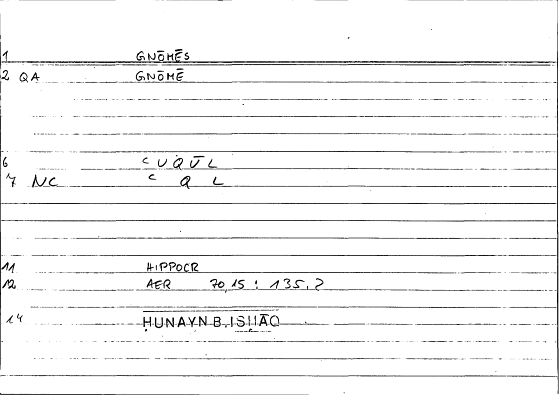 1 GNŌMĒS
2 QA GNŌMĒ
6 ʿUQŪL
7 NC ʿ Q L
11 HIPPOCR
12 AER 70,15 : 135,2
14 ḤUNAYN B. ISḤĀQ